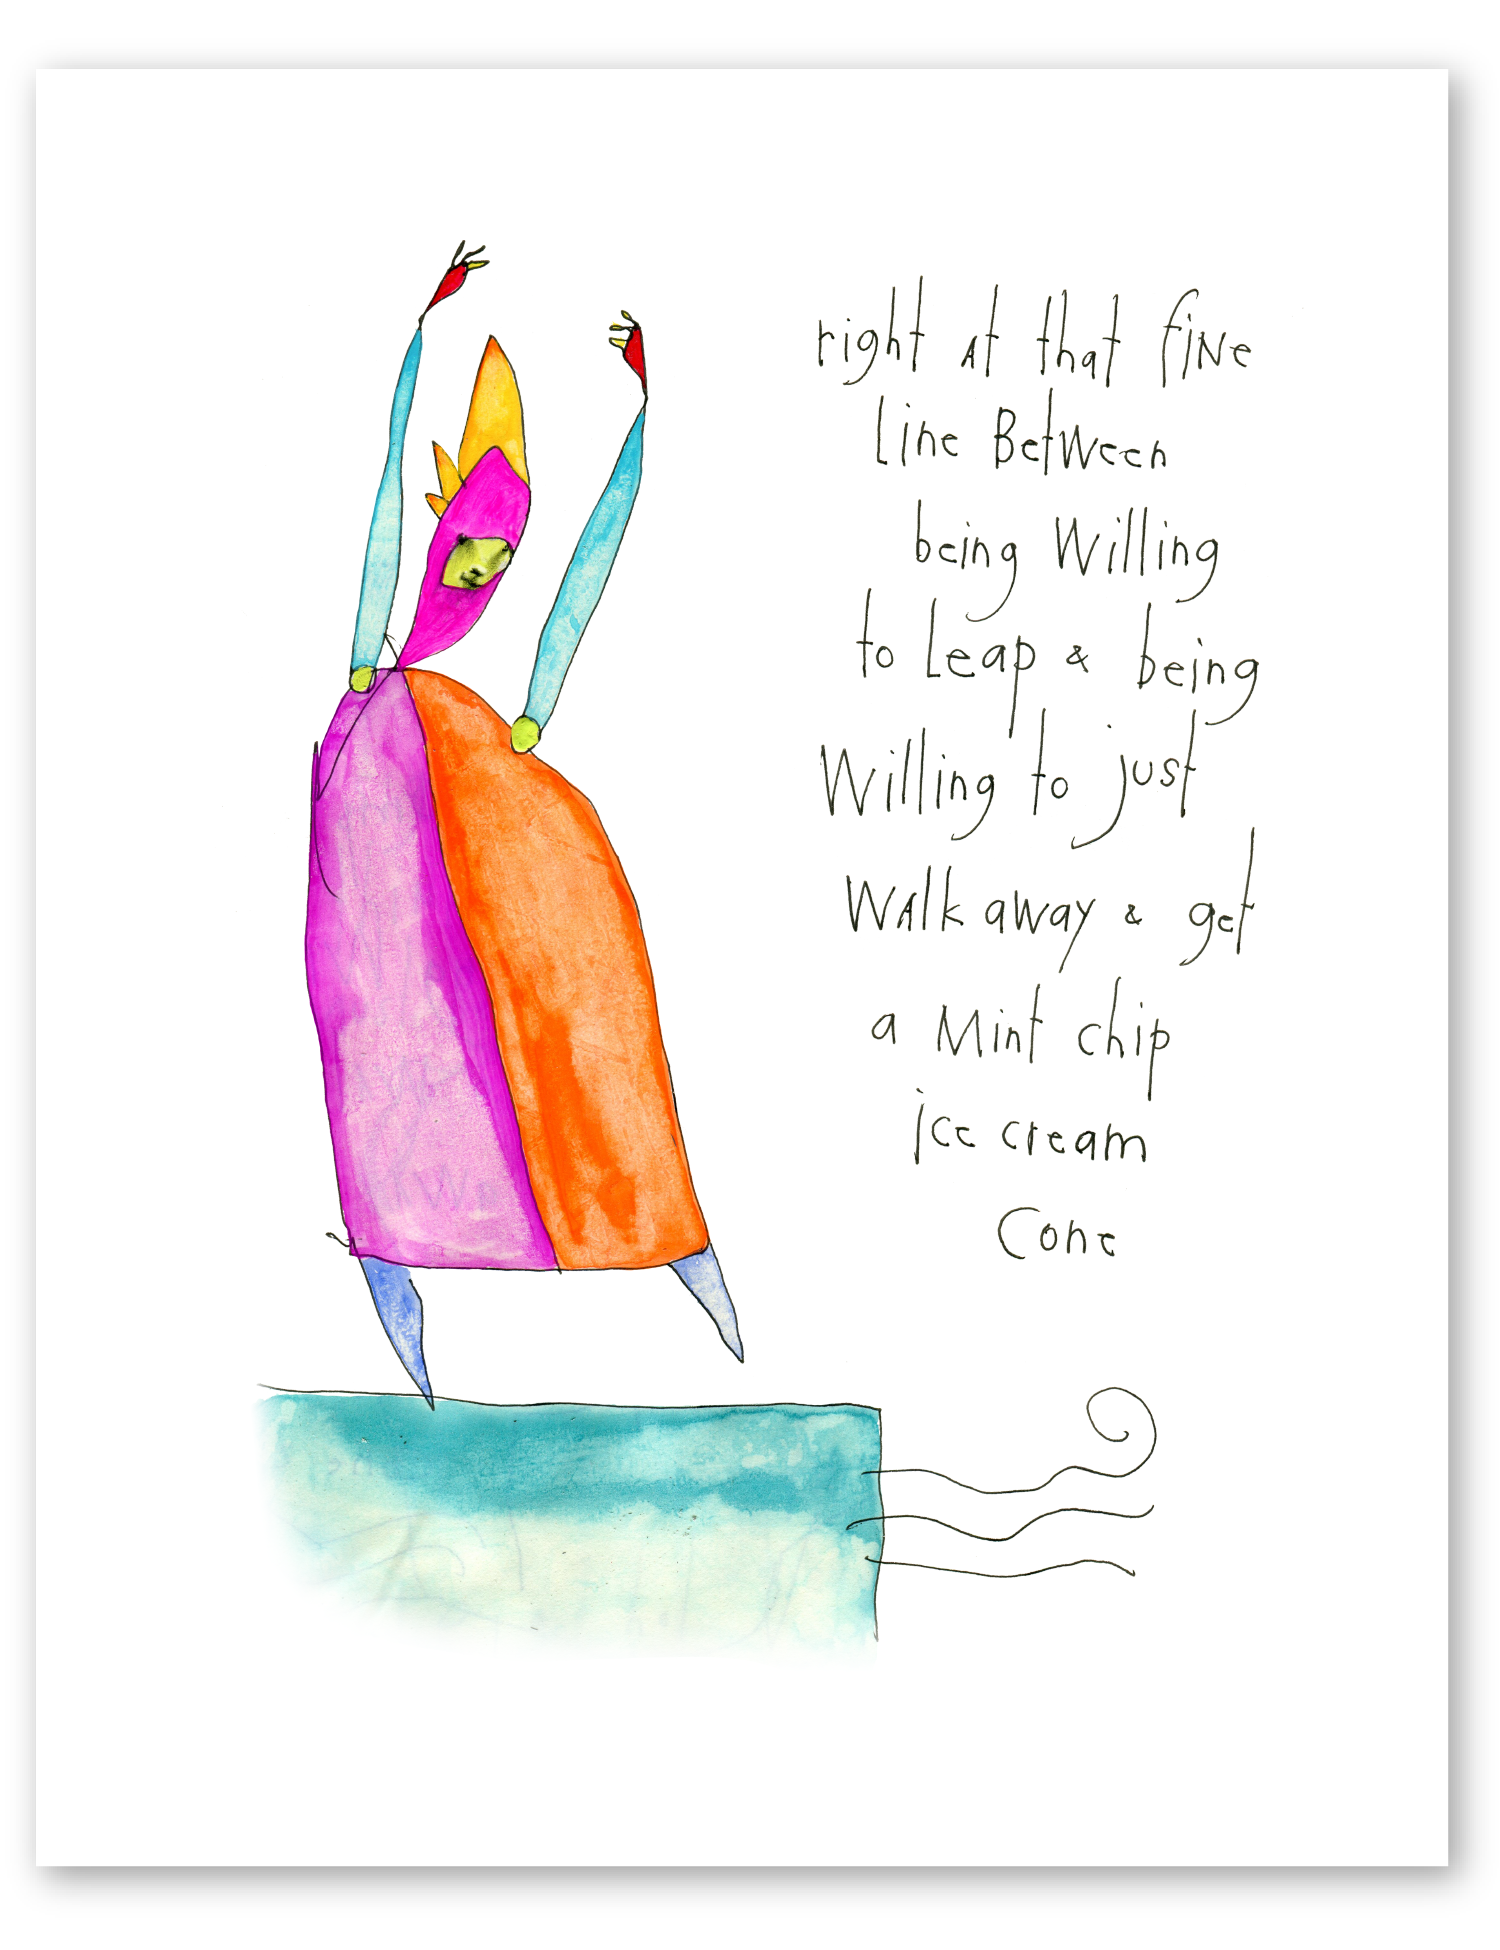 right at that fine
line Between
being Willing
to Leap & being
Willing to just
Walk away & get
a Mint chip
ice cream
Cone